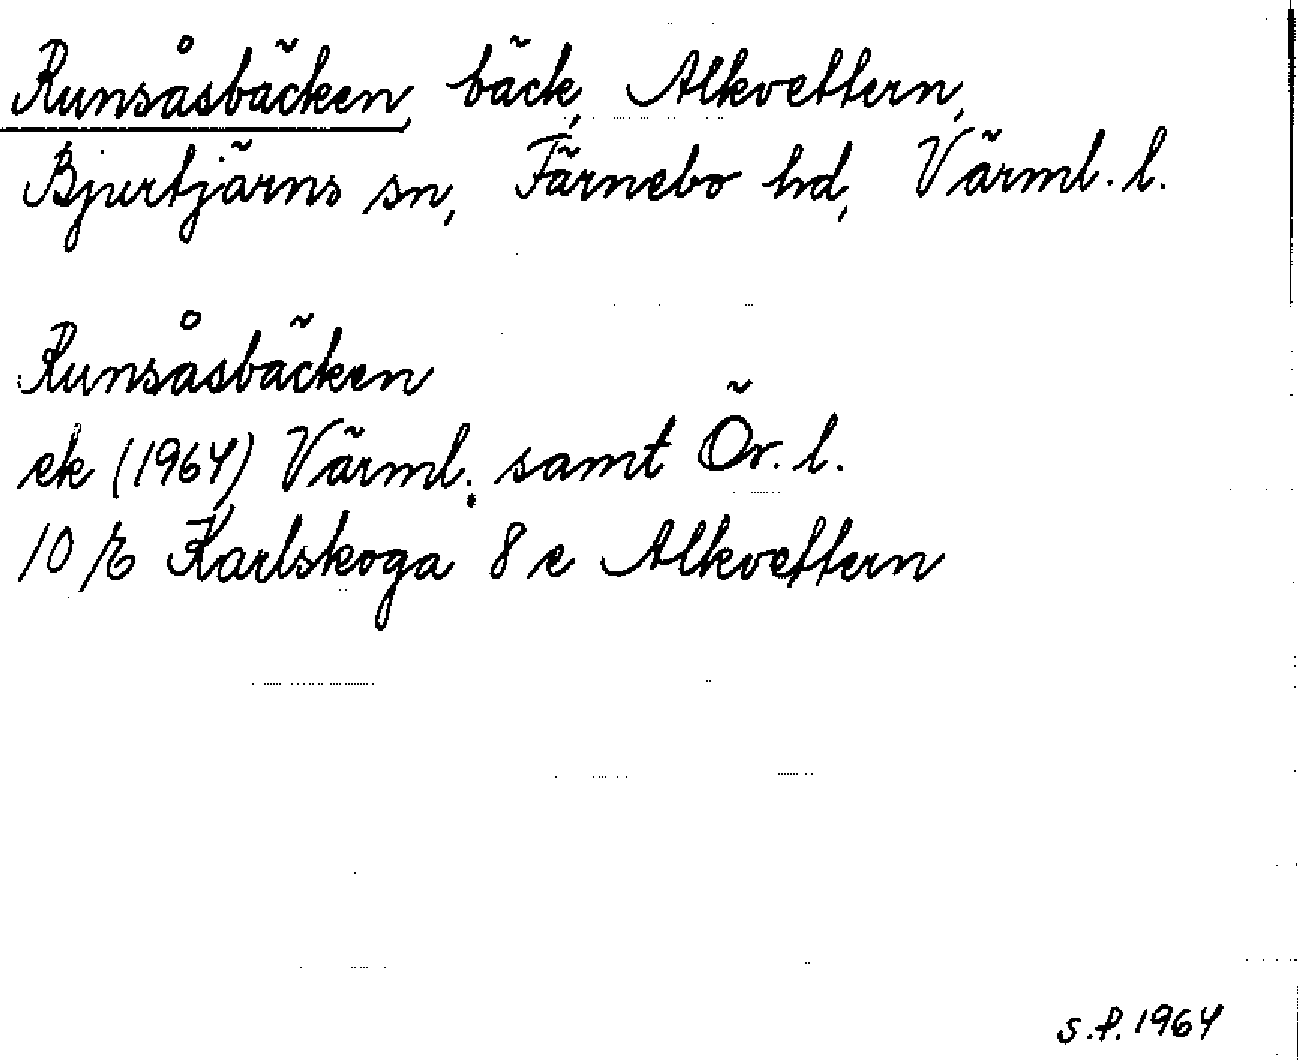 Runsåsbäcken, bäck, Alkvettern,
Bjurtjärns sn, Färnebo hd, Värml. l.
Runsåsbäcken
ek (1964) Värml. samt Ör. l.
10 E Karlskoga 8 e Alkvettern
S.f. 1964